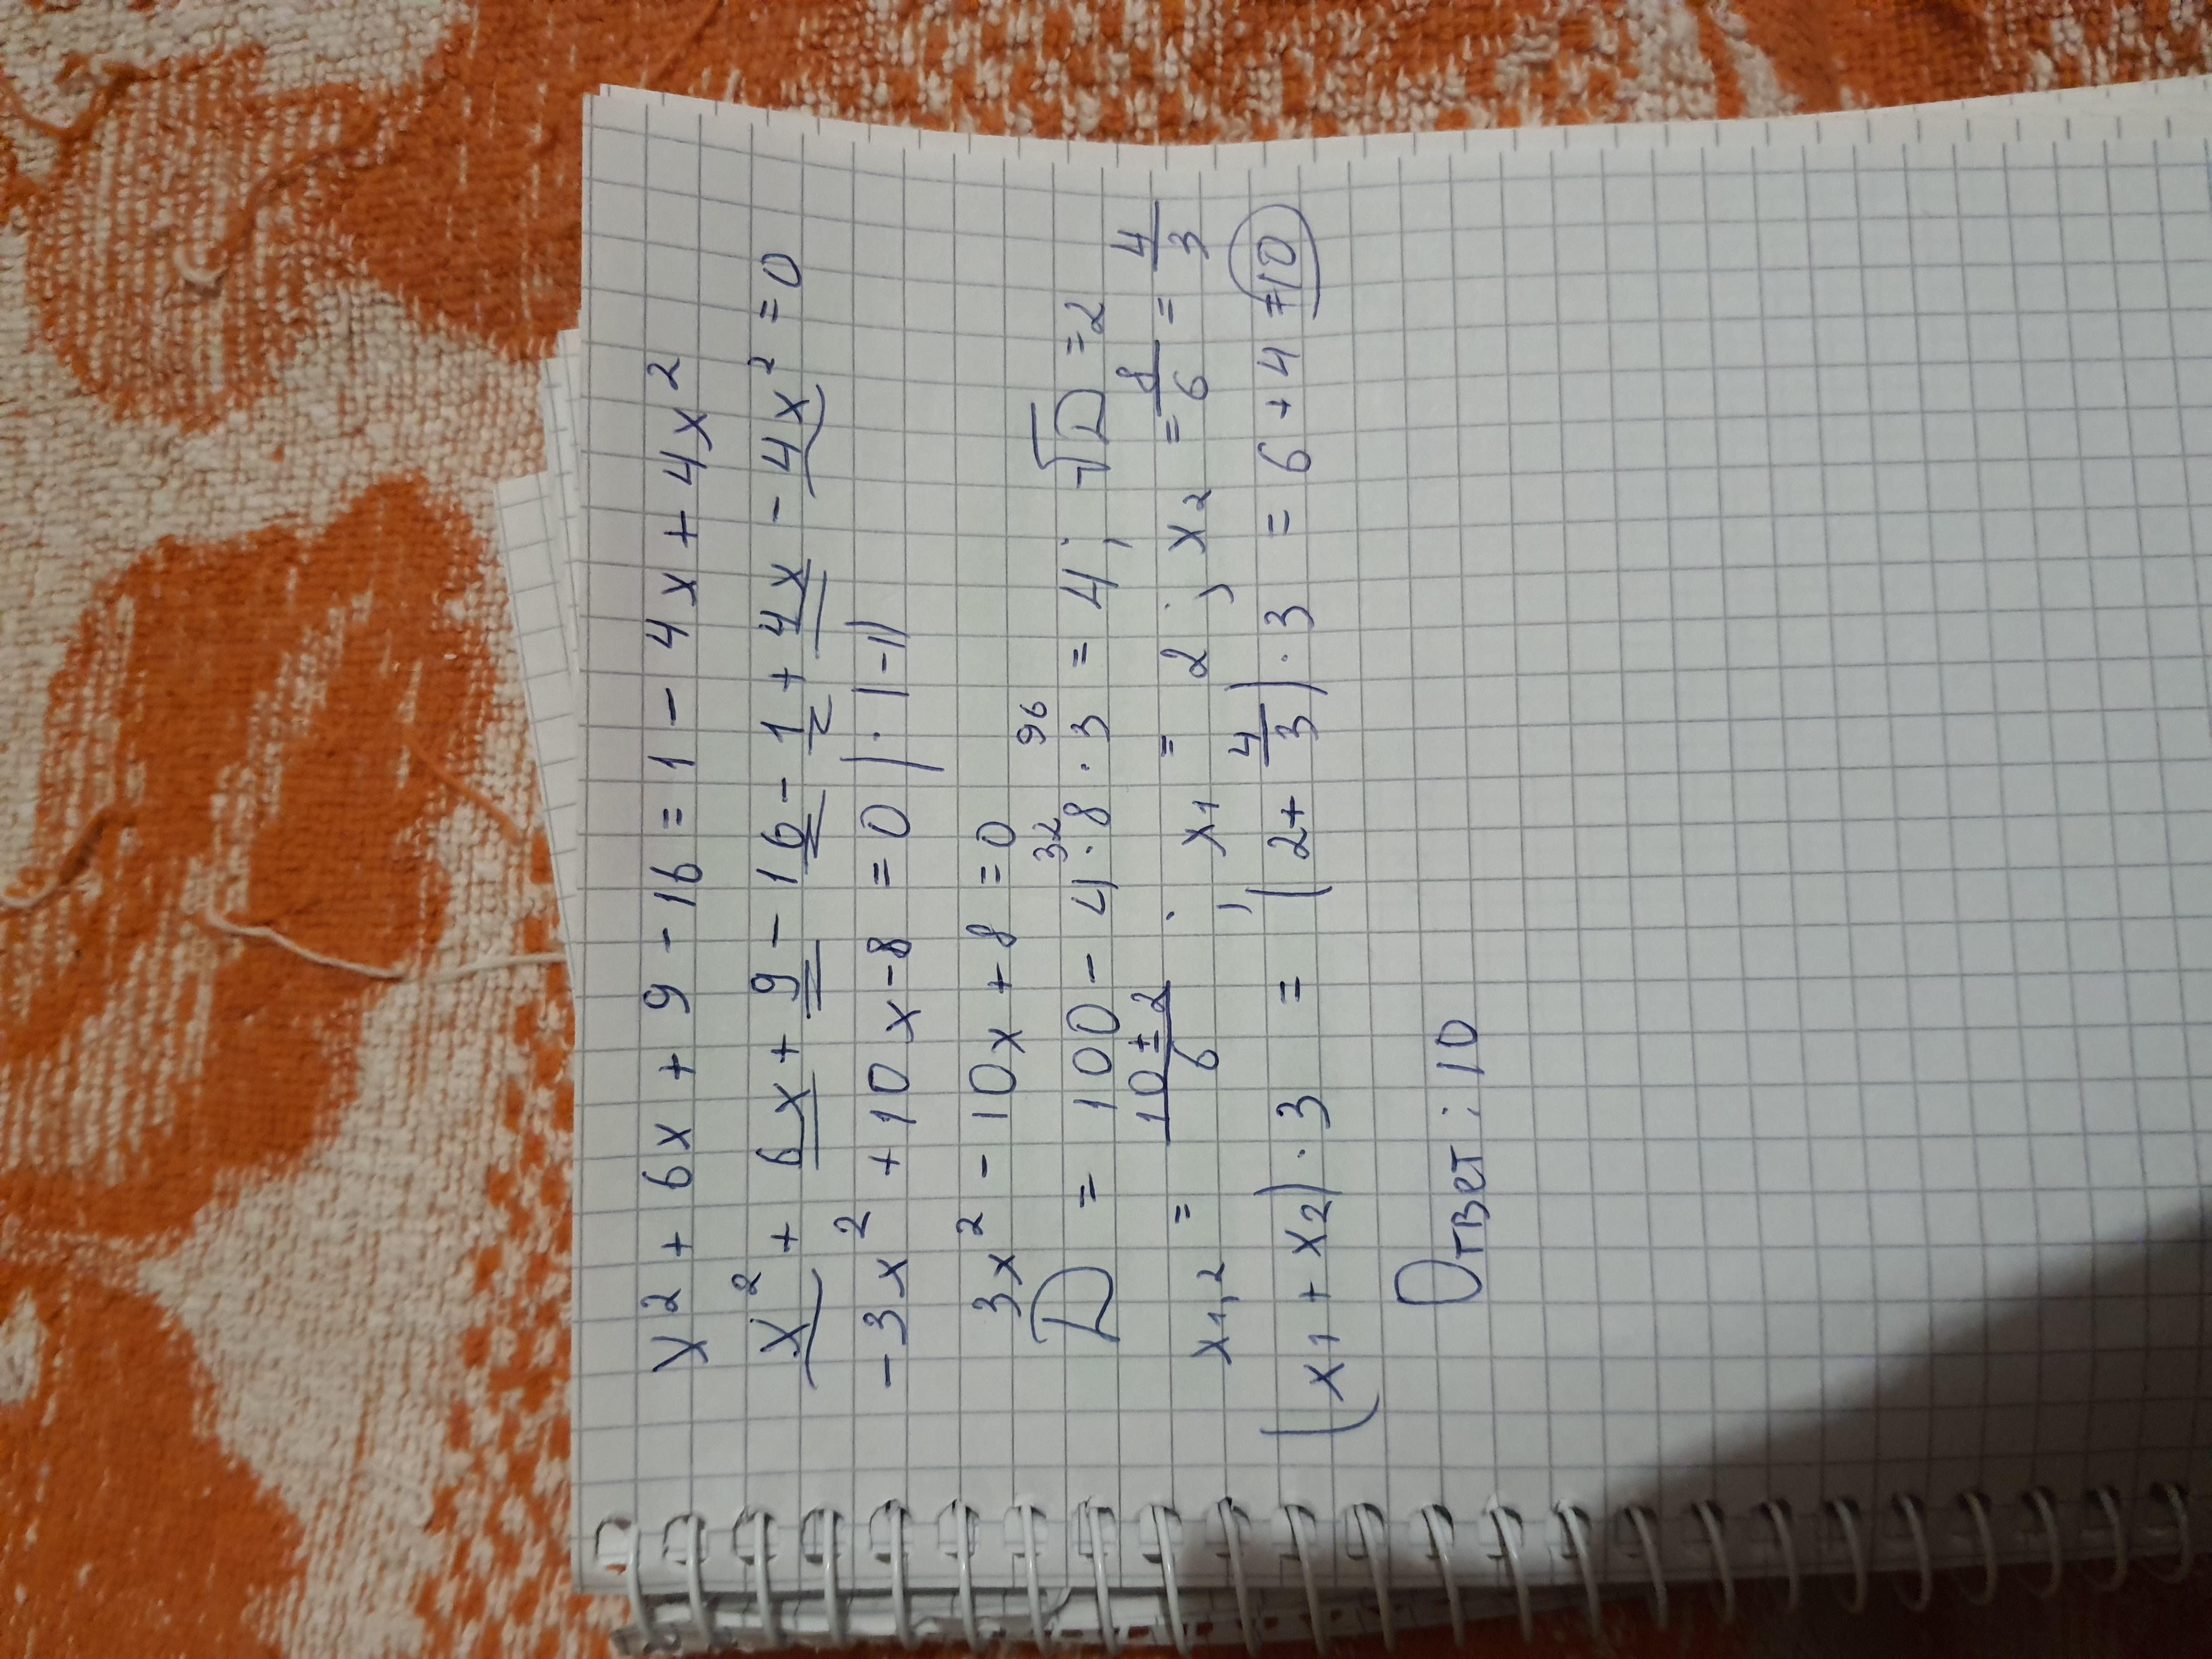 x² + 6x + 9 - 16 = 1 - 4x + 4x²
x² + 6x + 9 - 16 - 1 + 4x - 4x² = 0
-3x² + 10x - 8 = 0 | · |-1|
3x² - 10x + 8 = 0
32 96
D = 100 - 4 · 8 · 3 = 4; √D = 2
x1,2 = (10 ± 2)/6; x1 = 2; x2 = 8/6 = 4/3
(x1 + x2) · 3 = (2 + 4/3) · 3 = 6 + 4 = 10
Ответ: 10